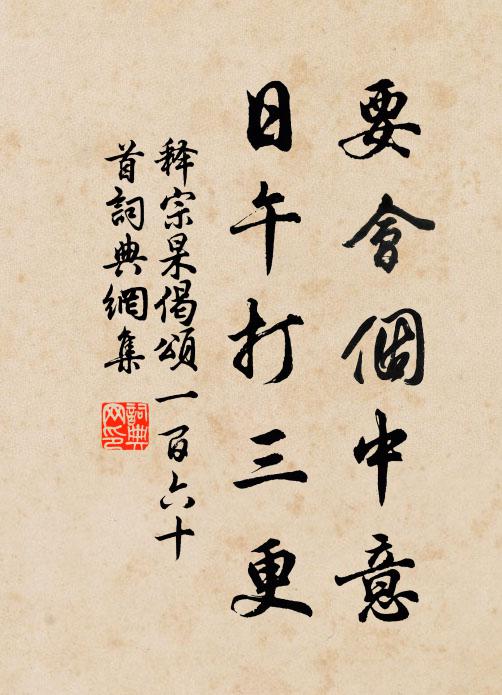 要會個中意
日午打三更
释宗杲偈頌一百六十
首詞典網集
詞典
网印